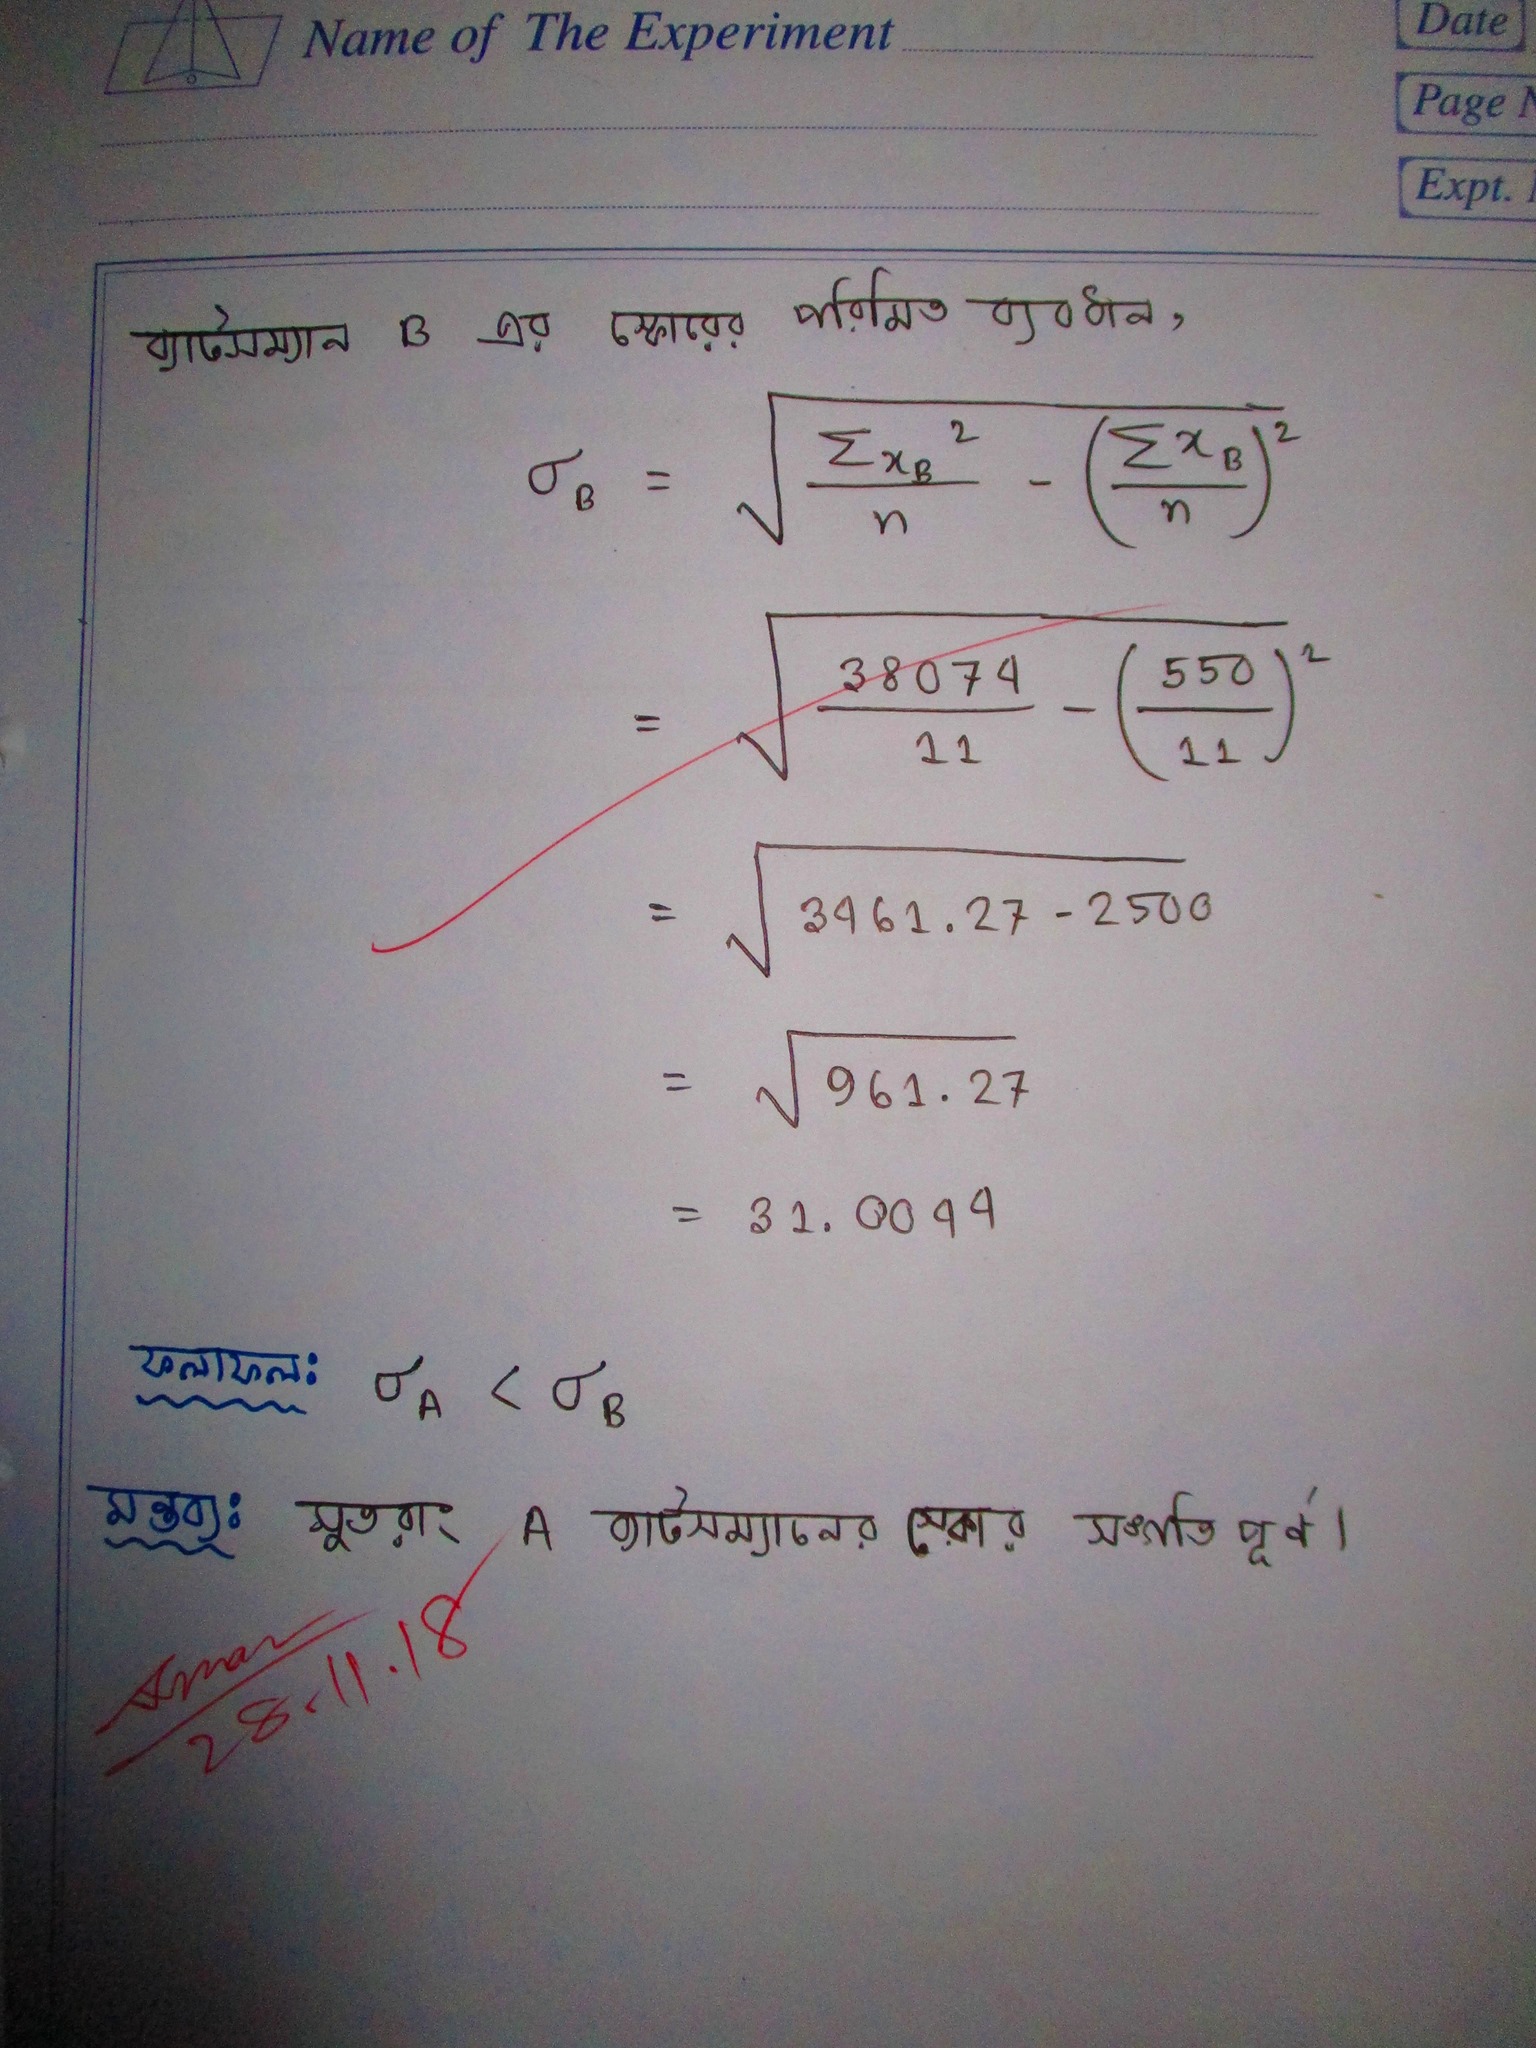 Name of The Experiment
Date
Page N
Expt.
ব্যাটসম্যান B এর স্কোরের পরিমিত ব্যবধান,
σ_B = √(Σx_B²/n - (Σx_B/n)²)
= √(38074/11 - (550/11)²)
= √(3461.27 - 2500)
= √961.27
= 31.0044
ফলাফল: σ_A < σ_B
মন্তব্য: সুতরাং A ব্যাটসম্যানের স্কোর সঙ্গতি পূর্ণ।
28.11.18